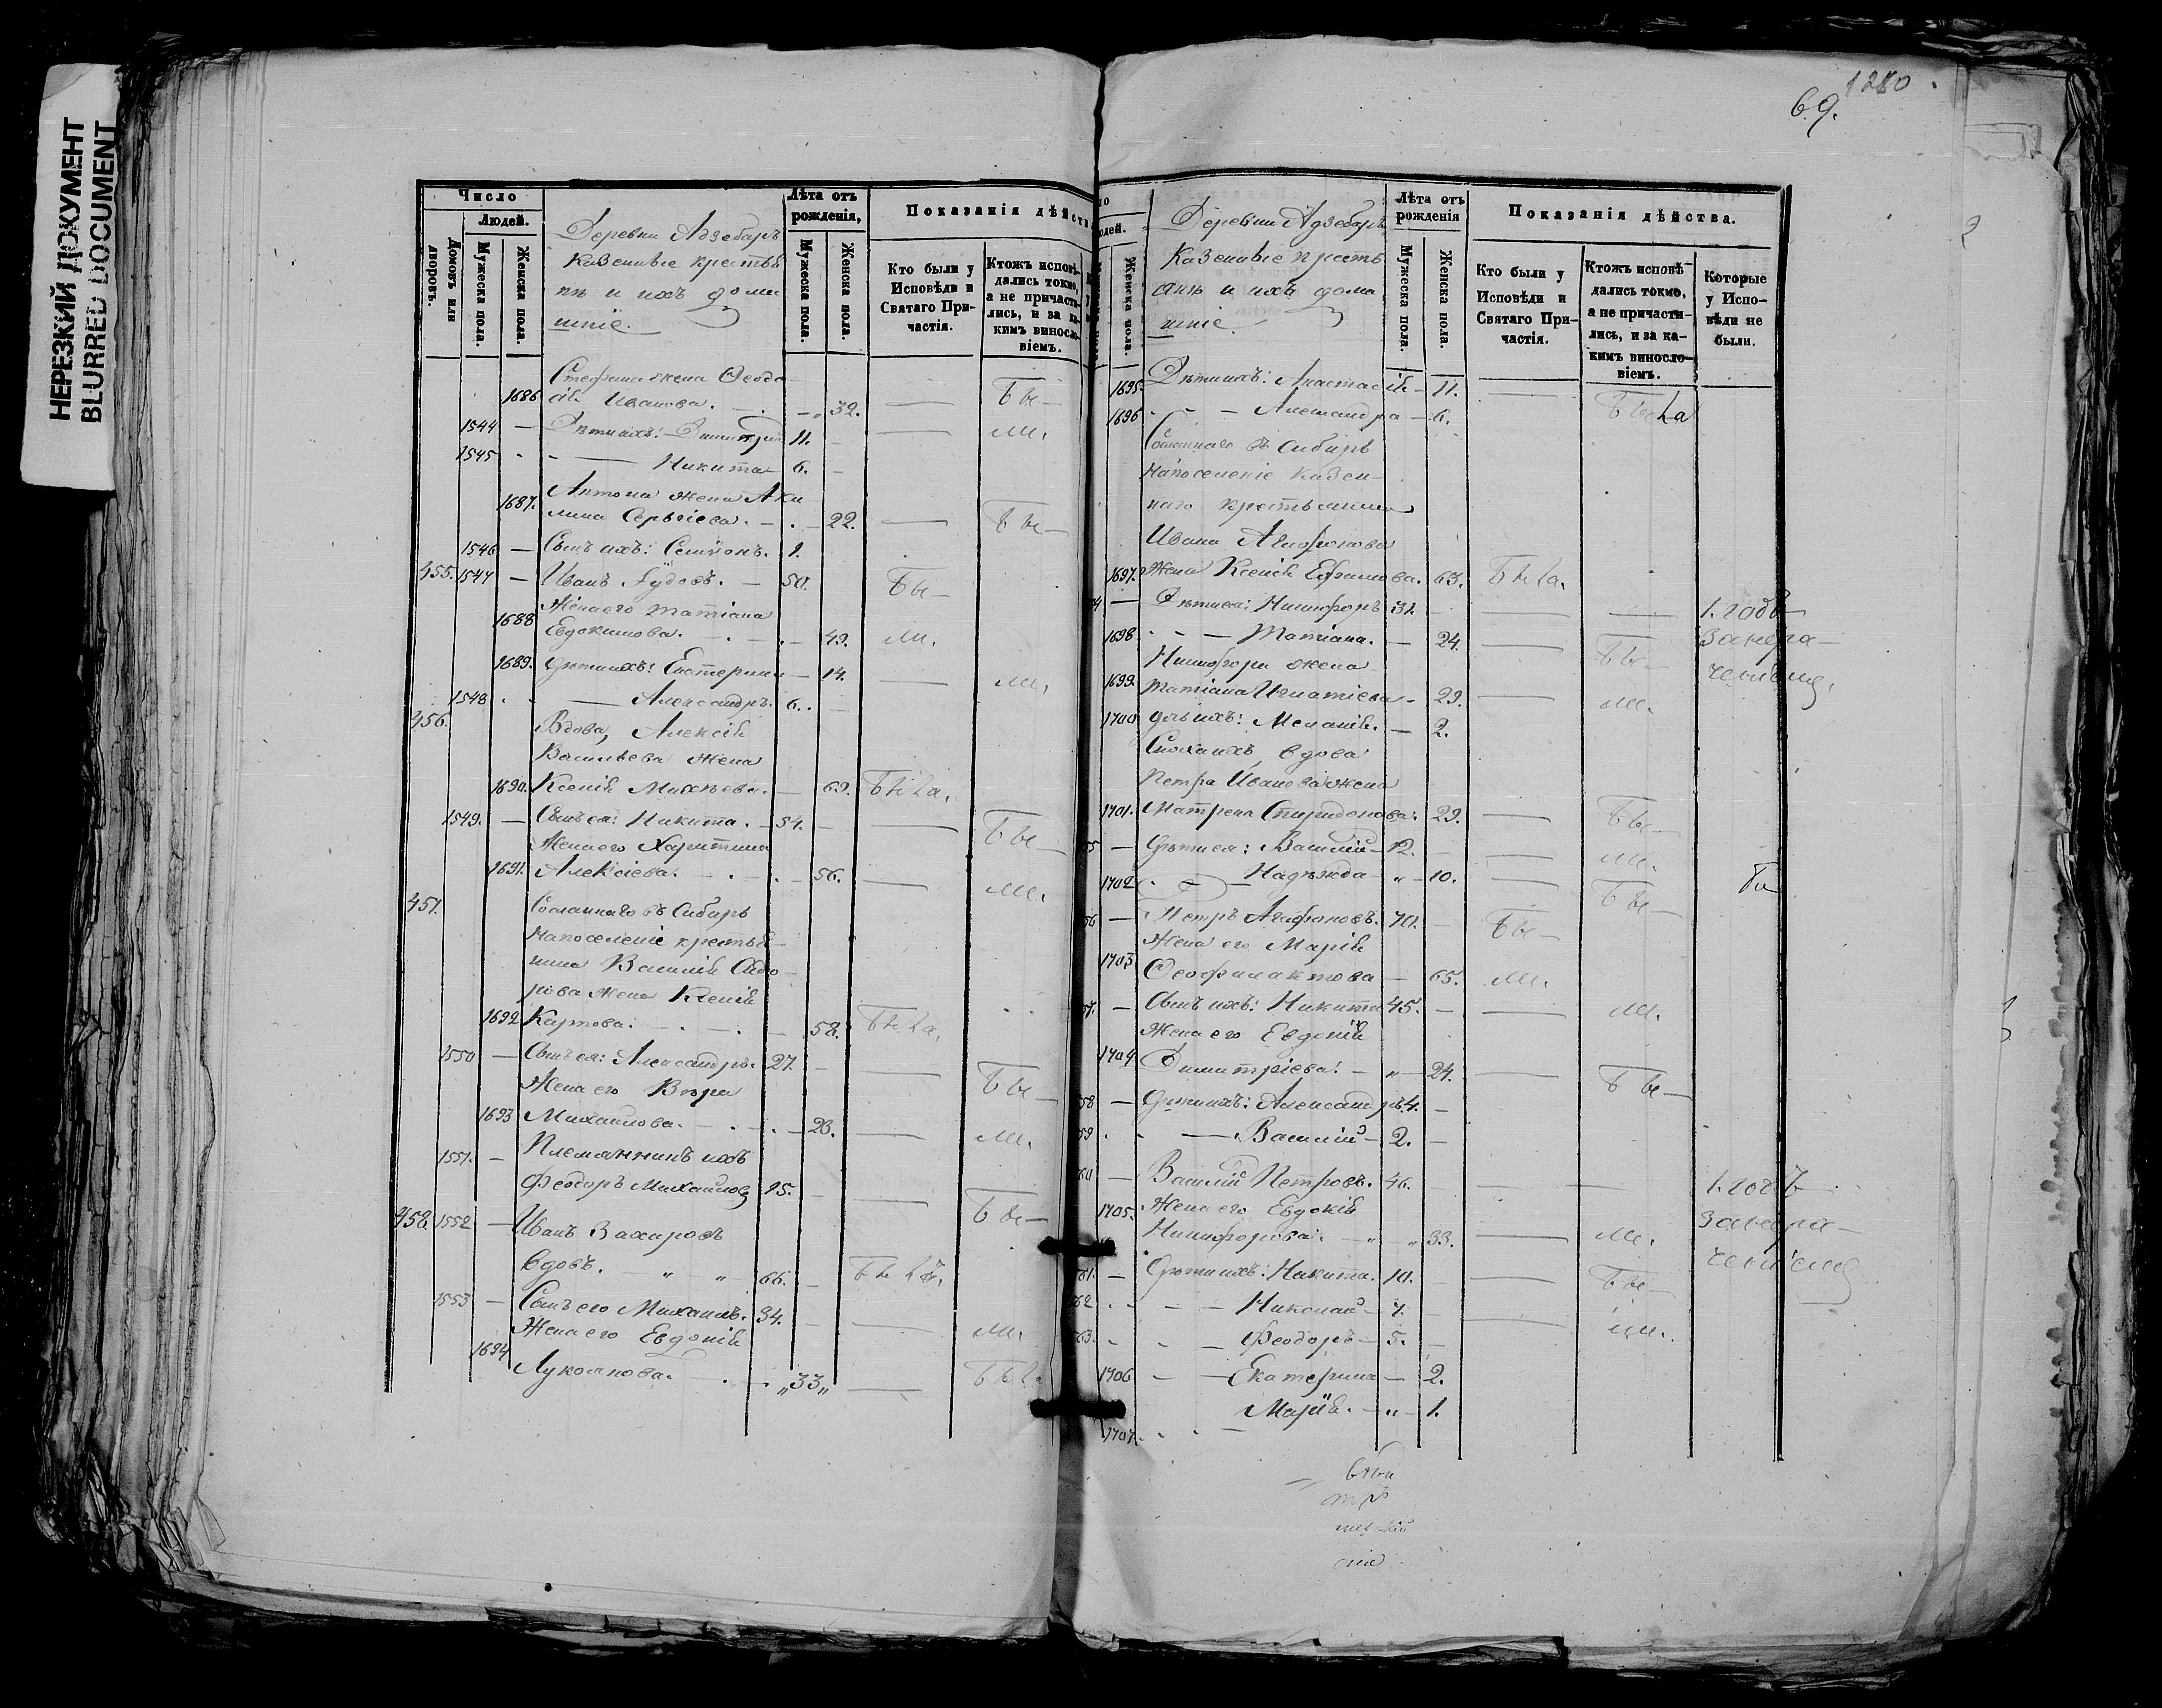 НЕРЕЗКИЙ ДОКУМЕНТ
BLURRED DOCUMENT
1280
69.
Число
Людей.
Домовъ или дворовъ.
Мужеска пола.
Женска пола.
Деревни Адзебаръ
казенные крестья
не и ихъ дома
шніе.
Лѣта отъ рожденія,
Мужеска пола.
Женска пола.
Показанія дѣйств
Кто были у Исповѣди и Святаго Причастія.
Ктожъ исповѣдались токмо, а не причастились, и за какимъ винословіемъ.
Стефана жена Ѳеодо
1686 сія Иванова. 32. Бы
1544 — Дѣти ихъ: Димитрій 11. — ли.
1545 — Никита 6.
1687. Антона жена Аки
лина Сергіева. 22. — Бы
1546 — Сынъ ихъ: Семіонъ. 1.
455. 1547 — Иванъ 50. Бы
Жена его Татіана
1688 Евдокимова. 49. ли.
1689. Дѣти ихъ: Екатерина — 14. — ли.
1548 — Александръ. 6.
456. Вдова, Алексія
Васильева жена
1690. Ксенія Михѣева. — 69. Была.
1549. — Сынъ ея: Никита. 54. — Бы
Жена его Харитина
1691. Алексіева. 56. — ли.
457. Сосланнаго въ Сибирь
на поселеніе крестья
нина Василія Сидо
рова жена Ксенія
1692 Карпова. 58. Была.
1550 — Сынъ ея: Александръ. 27. — Бы
Жена его Вѣра
1693 Михаилова. 26. — ли.
1551. — Племянникъ ихъ
Феодоръ Михайловъ 15. — Бы
458. 1552 — Иванъ Захаровъ
вдовъ. 66. — Былъ.
1553 — Сынъ его Михаилъ. 34. — ли.
Жена его Евдокія
1694 Лукоянова. „33„ —
Женска пола.
Деревни Адзебаръ
казенные кресть
яне и ихъ дома
шніе.
Лѣта отъ рожденія
Мужеска пола.
Женска пола.
Показанія дѣйства.
Кто были у Исповѣди и Святаго Причастія.
Ктожъ исповѣдались токмо, а не причастились, и за какимъ винословіемъ.
Которые у Исповѣди не были.
1695. Дѣти ихъ: Анастасія — 11. —
1696 — Александра — 6. Была
Сосланнаго въ Сибирь
на поселеніе казен
наго крестьянина
Ивана Агафонова
1697. жена Ксенія Ефимова. 63. Была.
— Дѣти ея: Никифоръ 31. — — 1. годъ
1698 — Татіана. — 24. — Бы за нера
Никифора жена чениемъ.
1699. Татіана Игнатіева 29. — ли.
1700 дочь ихъ: Меланія. — 2.
Сноха ихъ, вдова
Петра Иванова жена
1701. Матрена Спиридонова. 29. — Бы
— Дѣти ея: Василій — 12. — ли.
1702 — Надежда — 10. — Бы
— Петръ Агафоновъ. 70. — Бы
Жена его Марія
1703 Ѳеофилактова — 65. ли.
— Сынъ ихъ: Никита 45. — ли.
Жена его Евдокія
1704 Димитріева. — 24. — Бы
— Дѣти ихъ: Александръ. 4. —
— Василій — 2. —
— Василій Петровъ. 46. — — 1. годъ
1705. Жена его Евдокія за нера
Никифорова. 33. — ли. чениемъ
— Дѣти ихъ: Никита. 10. — Бы
— Николай — 7. — ли.
— Феодоръ — 5. —
1706 — Екатерина — 2.
1707. Марія. — 1.